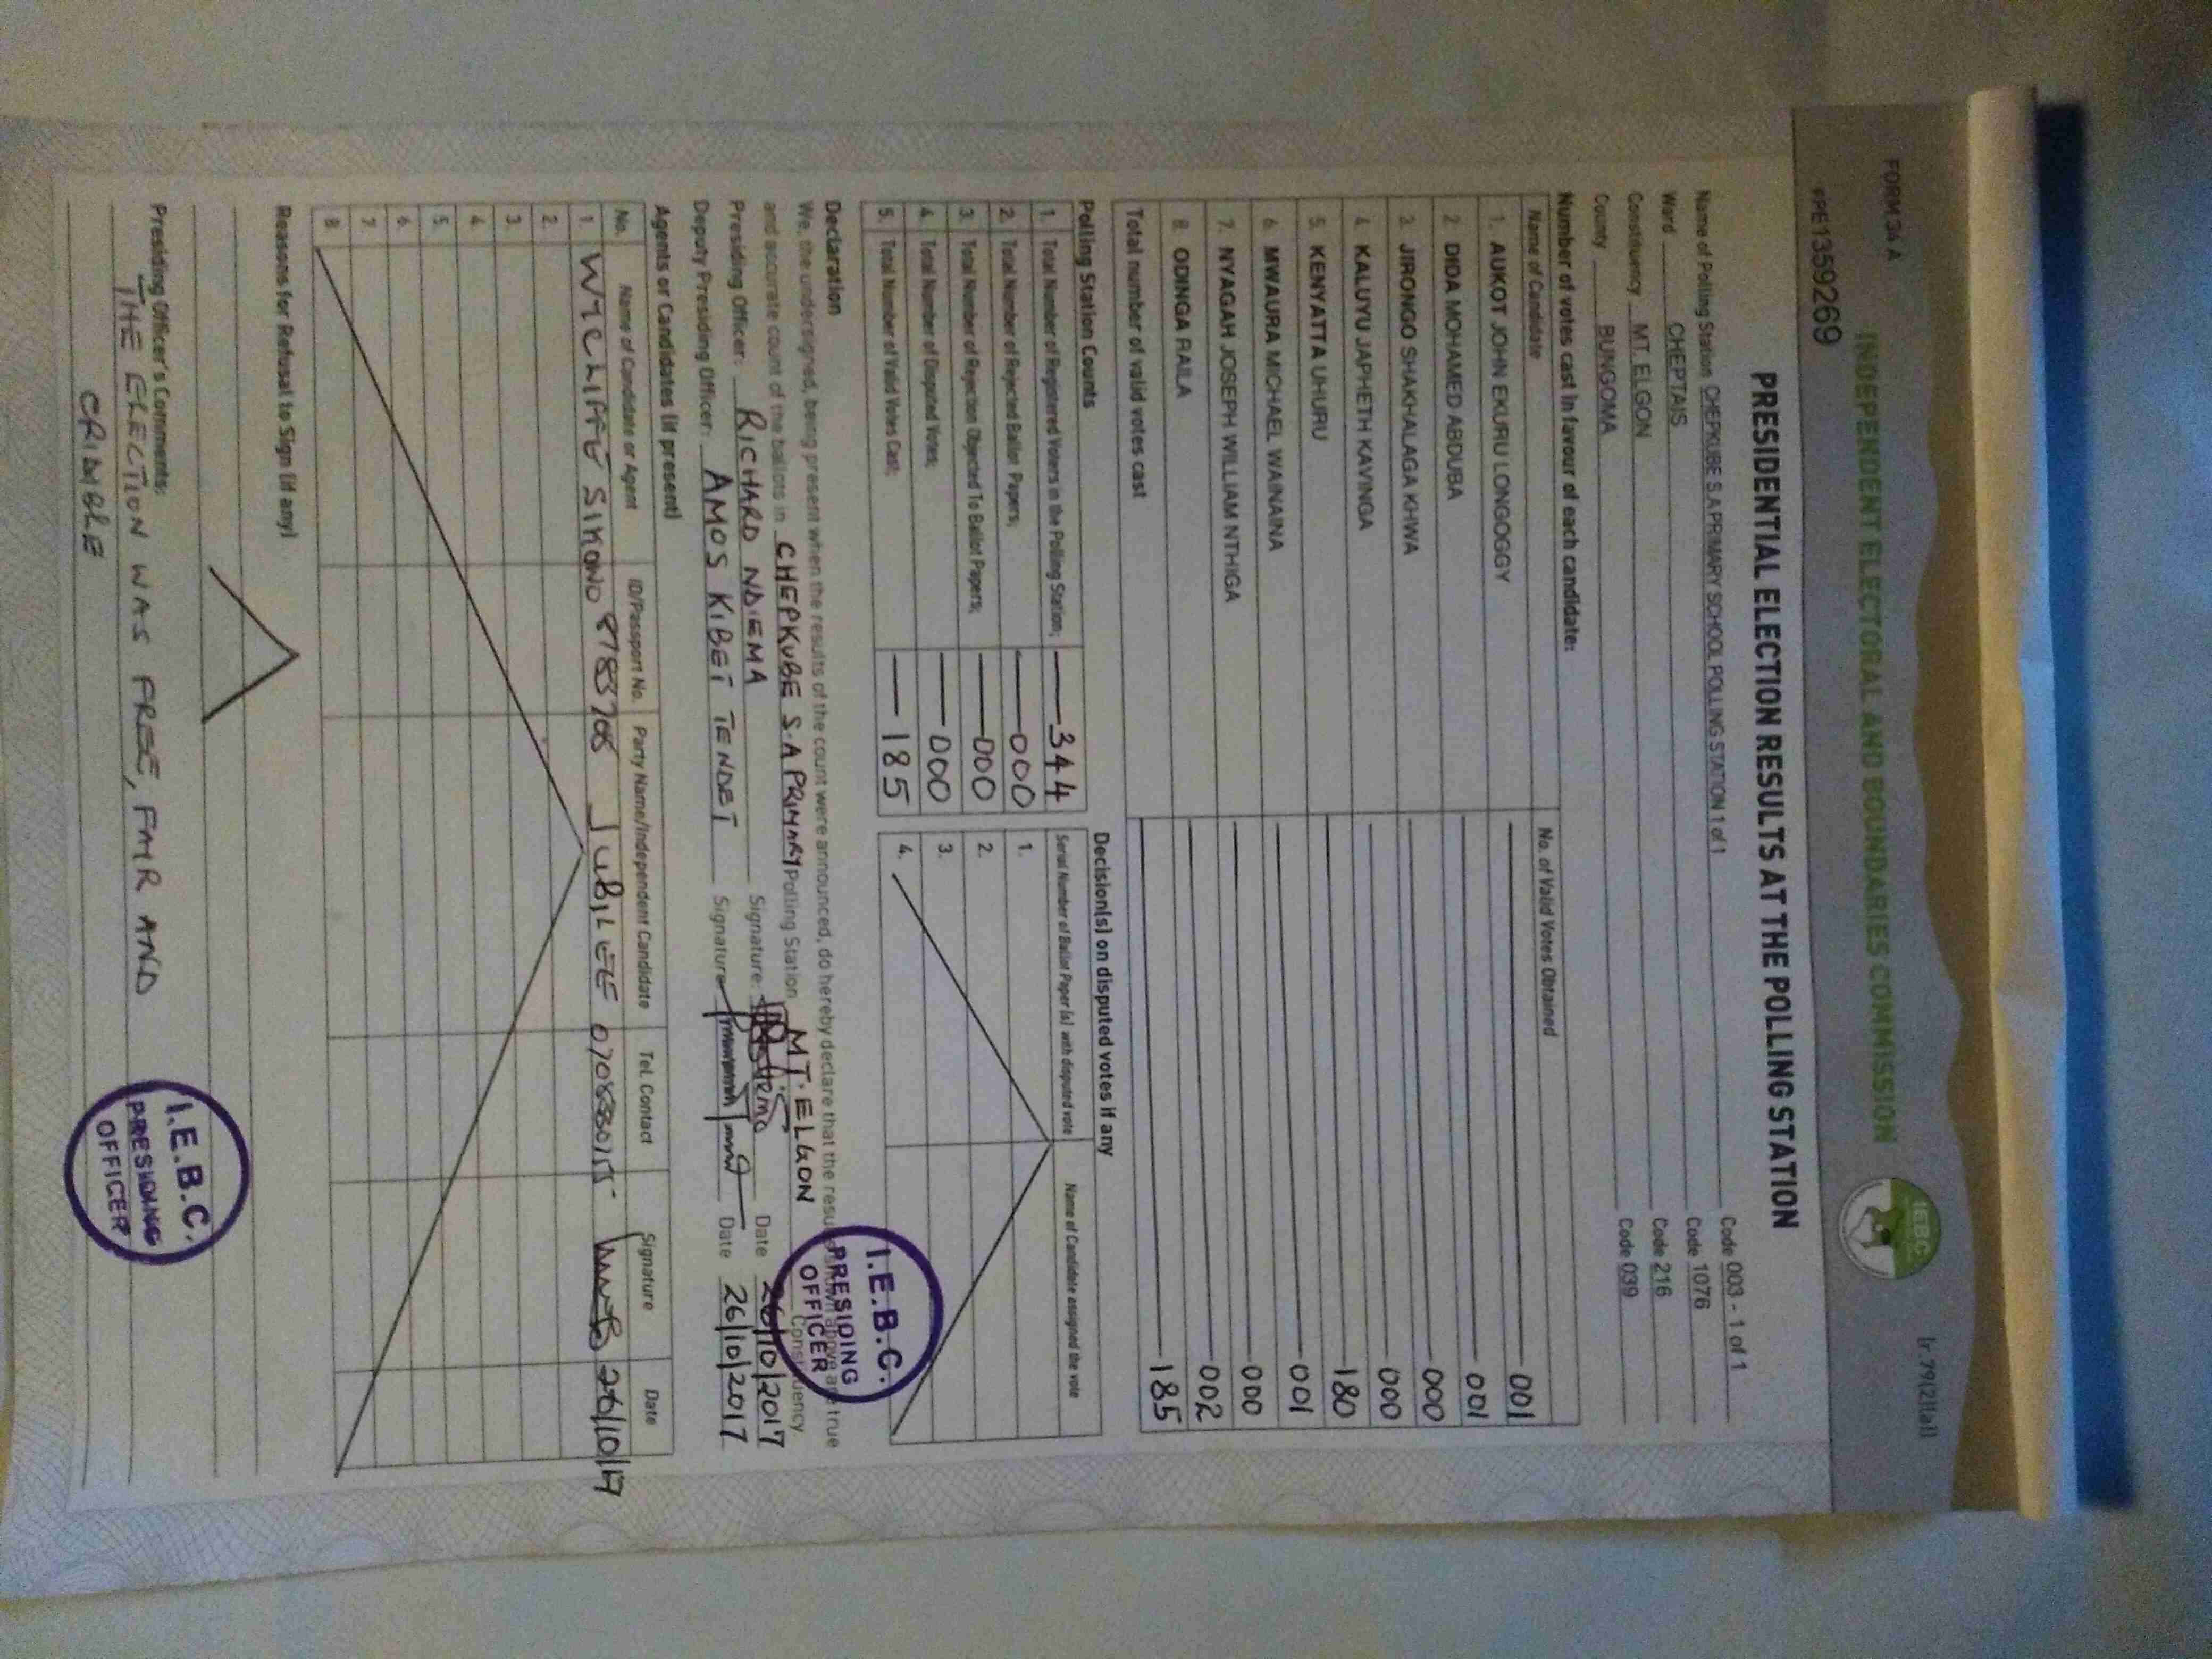 FORM 34 A
Ir 79(2)(a)
INDEPENDENT ELECTORAL AND BOUNDARIES COMMISSION
IEBC
PE1359269
PRESIDENTIAL ELECTION RESULTS AT THE POLLING STATION
Name of Polling Station CHEPKUBE S.A PRIMARY SCHOOL POLLING STATION 1 of 1 Code 003 - 1 of 1
Ward CHEPTAIS Code 1076
Constituency MT. ELGON Code 216
County BUNGOMA Code 039
Number of votes cast in favour of each candidate:
Name of Candidate No. of Valid Votes Obtained
1. AUKOT JOHN EKURU LONGOGGY 001
2 DIDA MOHAMED ABDUBA 001
3. JIRONGO SHAKHALAGA KHWA 000
4 KALUYU JAPHETH KAVINGA 000
5 KENYATTA UHURU 180
6 MWAURA MICHAEL WAINAINA 001
7. NYAGAH JOSEPH WILLIAM NTHIGA 000
8 ODINGA RAILA 002
Total number of valid votes cast 185
Polling Station Counts
1. Total Number of Registered Voters in the Polling Station; 344
2. Total Number of Rejected Ballot Papers; 000
3. Total Number of Rejection Objected To Ballot Papers; 000
4. Total Number of Disputed Votes; 000
5. Total Number of Valid Votes Cast; 185
Decision(s) on disputed votes if any
Serial Number of Ballot Paper (s) with disputed vote Name of Candidate assigned the vote
1.
2.
3.
4.
Declaration
We, the undersigned, being present when the results of the count were announced, do hereby declare that the results shown above are true
and accurate count of the ballots in CHEPKUBE S.A PRIMARY Polling Station MT. ELGON Constituency
Presiding Officer: RICHARD NDIEMA Signature: Date 26/10/2017
Deputy Presiding Officer: AMOS KIBET TENDET Signature Date 26/10/2017
I.E.B.C.
PRESIDING
OFFICER
Agents or Candidates (if present)
No. Name of Candidate or Agent ID/Passport No. Party Name/Independent Candidate Tel. Contact Signature Date
1. WYCLIFFE SIKOWO JUBILEE 26/10/17
2
3
4
5
6
7
8
Reasons for Refusal to Sign (if any)
Presiding Officer's Comments:
THE ELECTION WAS FREE, FAIR AND
CRIMBLE
I.E.B.C.
PRESIDING
OFFICER